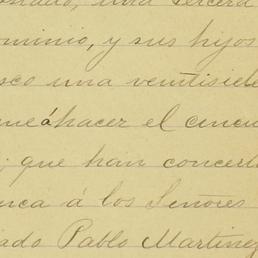 una tercera
ominio, y sus hijos
sco una veintisiete
á hacer el cincu
; que han concert
nca á los Señores
ado Pablo Martinez